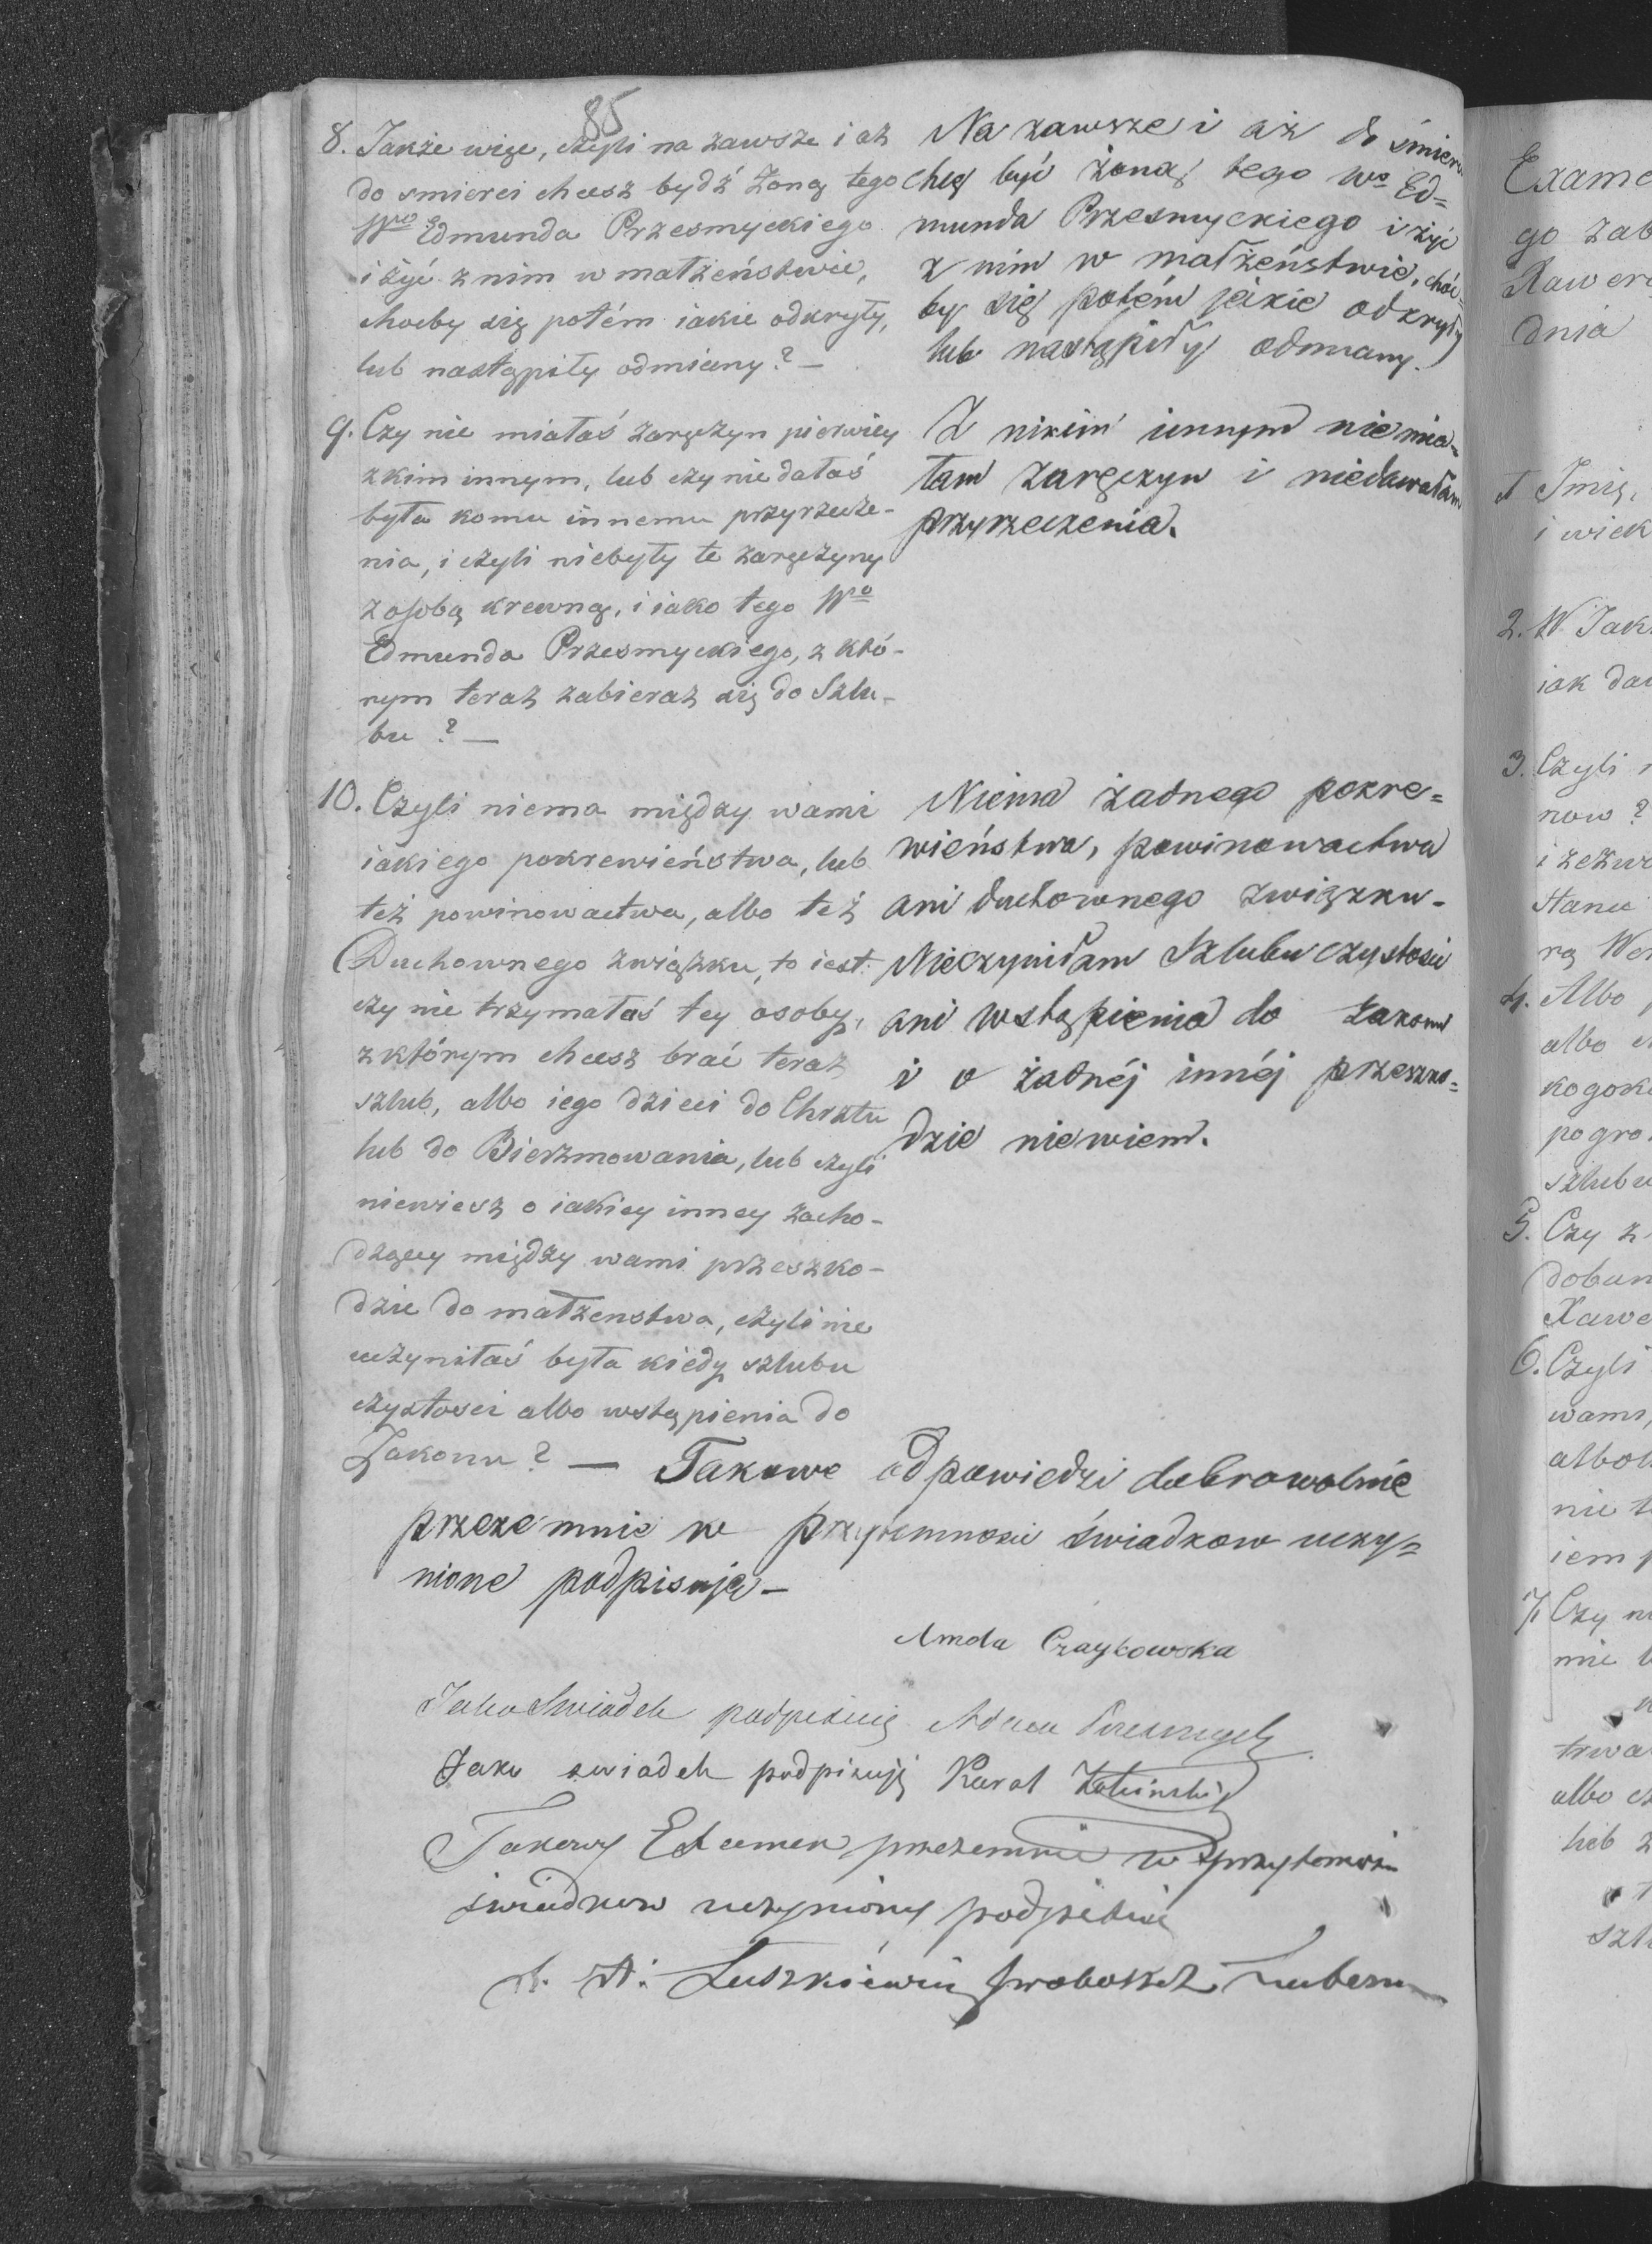 85
8. Jakże więc, czyli na zawsze i aż
do smierci chcesz bydź żoną tego
Wgo Edmunda Przesmyckiego
i żyć z nim w małżeństwie,
choćby się potém iakie odkryły,
lub nastąpiły odmiany? —
Na zawsze i aż do śmierci
chcę być żoną tego Wo Ed=
munda Przesmyckiego i żyć
z nim w małżeństwie, choć=
by się potém jakie odkryły
lub nastąpiły odmiany.
9. Czy nie miałaś zaręczyn pierwiey
z kim innym, lub czy nie dałaś
była komu innemu przyrzecze-
nia, i czyli niebyły te zaręczyny
z osobą krewną, i iako tego Wo
Edmunda Przesmyckiego, z któ-
rym teraz zabierasz się do Szlu-
bu? —
Z nikim innym niemia-
łam zaręczyn i niedawałam
przyrzeczenia.
10. Czyli niema między wami
iakiego pokrewieństwa, lub
też powinowactwa, albo też
Duchownego związku, to iest:
czy nie trzymałaś tey osoby,
z którym chcesz brać teraz
szlub, albo iego dzieci do Chrztu
lub do Bierzmowania, lub czyli
niewiesz o iakiey inney zacho-
dzącey między wami przeszko-
dzie do małżenstwa, czyli nie
uczyniłaś była kiedy szlubu
czystosci albo wstąpienia do
Zakonu? —
Niema żadnego pokre=
wieństwa, powinowactwa
ani duchownego związku-
Nieczyniłam Szlubu czystości
ani wstąpienia do zakonu
i o żadnéj innéj przeszko=
dzie niewiem.
Takowe odpowiedzi dobrowolnie
przezemnie w przytomności świadkow uczy=
nione podpisuję —
Amela Czaykowska
Jako Swiadek podpisuię Adam
Jako swiadek podpisuję Karol
Takowy Examen przezemnie w przytomności
świadkow uczyniony podpisuię
X. A. Łuszkiewicz Proboszcz
Exame
go zab
Xawere
dnia
1 Imię,
i wiek
2. W Jak
iak da
3. Czyli
now?
i zezwo
stanu
rą We
4. Albo
albo
kogok
pogro
szlubu
5. Czy z
Xawe
6. Czyli
wami,
albo
nie t
iem p
7. Czy n
mie
trwa
albo
lub z
szl